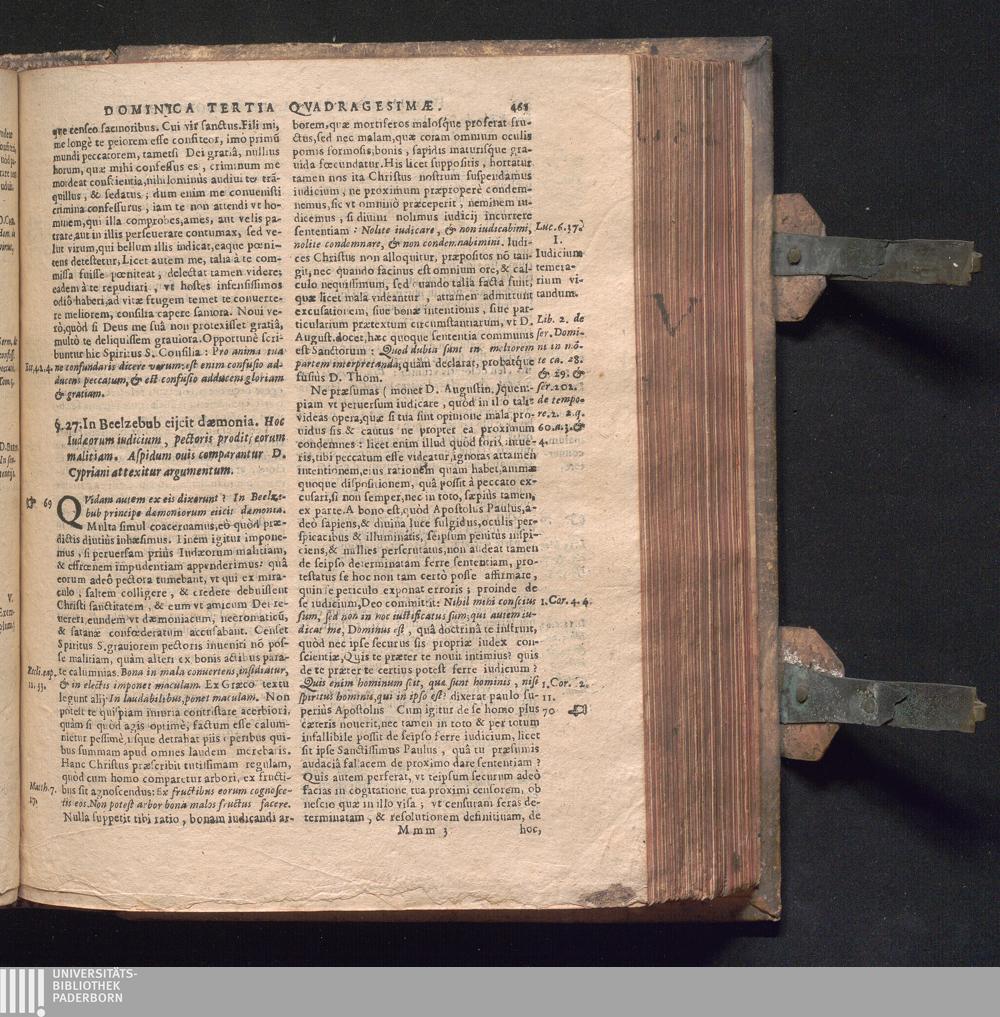 DOMINICA TERTIA QVADRAGESIMÆ. 461
que censeo facinoribus. Cui vir sanctus. Fili mi,
me longè te peiorem esse confiteor, imò primũ
mundi peccatorem, tametsi Dei gratiâ, nullius
horum, quæ mihi confessus es, criminum me
mordeat conscientia, nihilominùs audiui te trã-
quillus, & sedatus; dum enim me conuenisti
crimina confessurus, iam te non attendi vt ho-
minem, qui illa comprobes, ames, aut velis pa-
trare, aut in illis perseuerare contumax, sed ve-
lut virum, qui bellum illis indicat, eaque pœni-
tens detestetur, Licet autem me, talia à te com-
missa fuisse pœniteat, delectat tamen videre;
eadem à te repudiari, vt hostes infensissimos
odiô haberi, ad vitæ frugem temet te conuerte-
re meliorem, consilia capere saniora. Noui ve-
rò, quòd si Deus me suâ non protexisset gratiâ,
multò te deliquissem grauiora. Opportunè scri-
buntur hîc Spiritus S. Consilia: Pro anima tua
Eu, 4 2. 4. ne confundaris dicere verum: est enim confusio ad-
ducens peccatum, & est confusio adducens gloriam
& gratiam.
§. 27. In Beelzebub eijcit dæmonia. Hoc
Iudæorum iudicium, pectoris prodit, eorum
malitiam. Aspidum ouis comparantur D.
Cypriani attexitur argumentum.
☞ 69 QVidam autem ex eis dixerunt? In Beelze-
bub principe dæmoniorum eiicit dæmonia.
Multa simul coaceruamus, eò quòd præ-
dictis diutiùs inhæsimus. Finem igitur impone-
mus, si peruersam priùs Iudæorum malitiam,
& effrœnem impudentiam appenderimus: quâ
eorum adeô pectora tumebant, vt qui ex mira-
culo, saltem colligere, & credere debuissent
Christi sanctitatem, & eum vt amicum Dei re-
uereri, eundem vt dæmoniacum, necromaticũ,
& satanæ confœderatum accusabant. Censet
Spiritus S. grauiorem pectoris inueniri nō pos-
se malitiam, quàm alteri ex bonis actibus para-
Eccli. cap. te calumnias. Bona in mala conuertens, insidiatur,
11. 33. & in electis imponet maculam. Ex Græco textu
legunt alij: In laudabilibus, ponet maculam. Non
potest te quispiam iniuria contristare acerbiori,
quàm si quòd agis optimè, factum esse calum-
nietur pessimè, isque detrahat piis operibus qui-
bus summam apud omnes laudem merebaris.
Hanc Christus præscribit tutissimam regulam,
quòd cum homo comparetur arbori, ex fructi-
Matth. 7. bus sit agnoscendus: Ex fructibus eorum cognosce-
17. tis eos. Non potest arbor bona malos fructus facere.
Nulla suppetit tibi ratio, bonam iudicandi ar-
borem, quæ mortiferos malosque proferat fru-
ctus, sed nec malam, quæ coram omnium oculis
pomis formosis, bonis, sapidis maturisque gra-
uida fœcundatur. His licet suppositis, hortatur
tamen nos ita Christus nostrum suspendamus
iudicium, ne proximum præproperè condem-
nemus, sic vt omninò præceperit, neminem iu-
dicemus, si diuini nolimus iudicij incurrere
sententiam: Nolite iudicare, & non iudicabimi, Luc. 6. 37.
nolite condemnare, & non condemnabimini. Iudi- I.
ces Christus non alloquitur, præpositos nō tan- Iudicium
git, nec quando facinus est omnium ore, & cal- temera-
culo nequissimum, sed quando talia facta sunt, rium vi-
quæ licet mala videantur, attamen admittunt tandum.
excusationem, siue bonæ intentionis, siue par-
ticularium prætextum circumstantiarum, vt D. Lib. 2. de
August. docet, hæc quoque sententia communis ser. Domi-
est Sanctorum: Quod dubia sunt in meliorem ni in mō-
partem interpretanda; quàm declarat, probatque te ca. 28.
fusiùs D. Thom. & 29. &
Ne præsumas (monet D. Augustin.) quem- ser. 202.
piam vt peruersum iudicare, quòd in illo tale de tempo-
videas opera, quæ si tua sint opinione mala, pro- re. 2. 2. q.
uidus sis & cautus ne propter ea proximum 60. a. 3. &
condemnes: licet enim illud quòd foris intue- 4.
ris, tibi peccatum esse videatur, ignoras attamen
intentionem, eius rationem quam habet, animæ
quoque dispositionem, quâ possit à peccato ex-
cusari, si non semper, nec in toto, sæpiùs tamen,
ex parte. A bono est, quòd Apostolus Paulus, a-
deò sapiens, & diuina luce fulgidus, oculis per-
spicatibus & illuminatis, seipsum penitùs inspi-
ciens, & millies perscrutatus, non audeat tamen
de seipso determinatam ferre sententiam, pro-
testatus se hoc non tam certò posse affirmare,
quin se periculo exponat erroris; proinde de
se iudicium, Deo committit: Nihil mihi conscius 1. Cor. 4. 4.
sum, sed non in hoc iustificatus sum; qui autem iu-
dicat me, Dominus est, quâ doctrinâ te instruit,
quòd nec ipse securus sis propriæ iudex con-
scientiæ, Quis te præter te nouit intimiùs? quis
de te præter te certius potest ferre iudicium?
Quis enim hominum scit, quæ sunt hominis, nisi 1. Cor. 2.
spiritus hominis, qui in ipso est? dixerat paulo su- 11.
periùs Apostolus Cum igitur de se homo plus 70 ☜
cæteris nouerit, nec tamen in toto & per totum
infallibile possit de seipso ferre iudicium, licet
sit ipse Sanctissimus Paulus, quâ tu præsumis
audaciâ fallacem de proximo dare sententiam?
Quis autem perferat, vt teipsum securum adeò
facias in cogitatione tua proximi censorem, ob
nescio quæ in illo visa; vt censurani feras de-
terminatam, & resolutionem definitiuam, de
Mmm 3 hoc,
UNIVERSITÄTS-
BIBLIOTHEK
PADERBORN